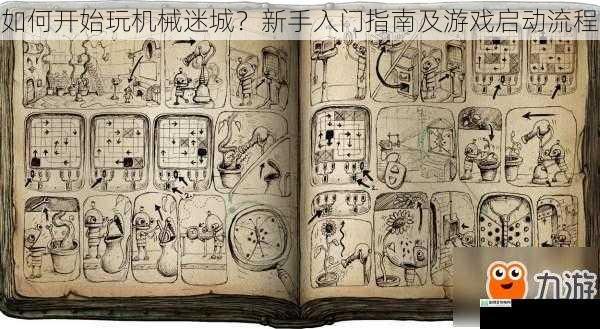 如何开始玩机械迷城？新手入门指南及游戏启动流程
九游